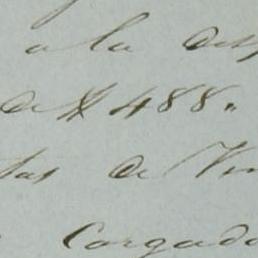 a la des
de $ 488."
tas de Vin
Cargado